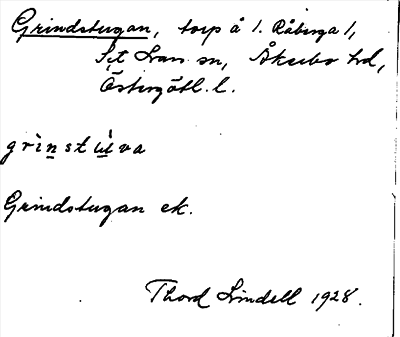 Grindstugan, torp å 1. Råberga 1,
S:t Ivars sn, Åkerbo hd,
Östergötl. l.
grìnstùva
Grindstugan ek.
Thord Lindell 1928.